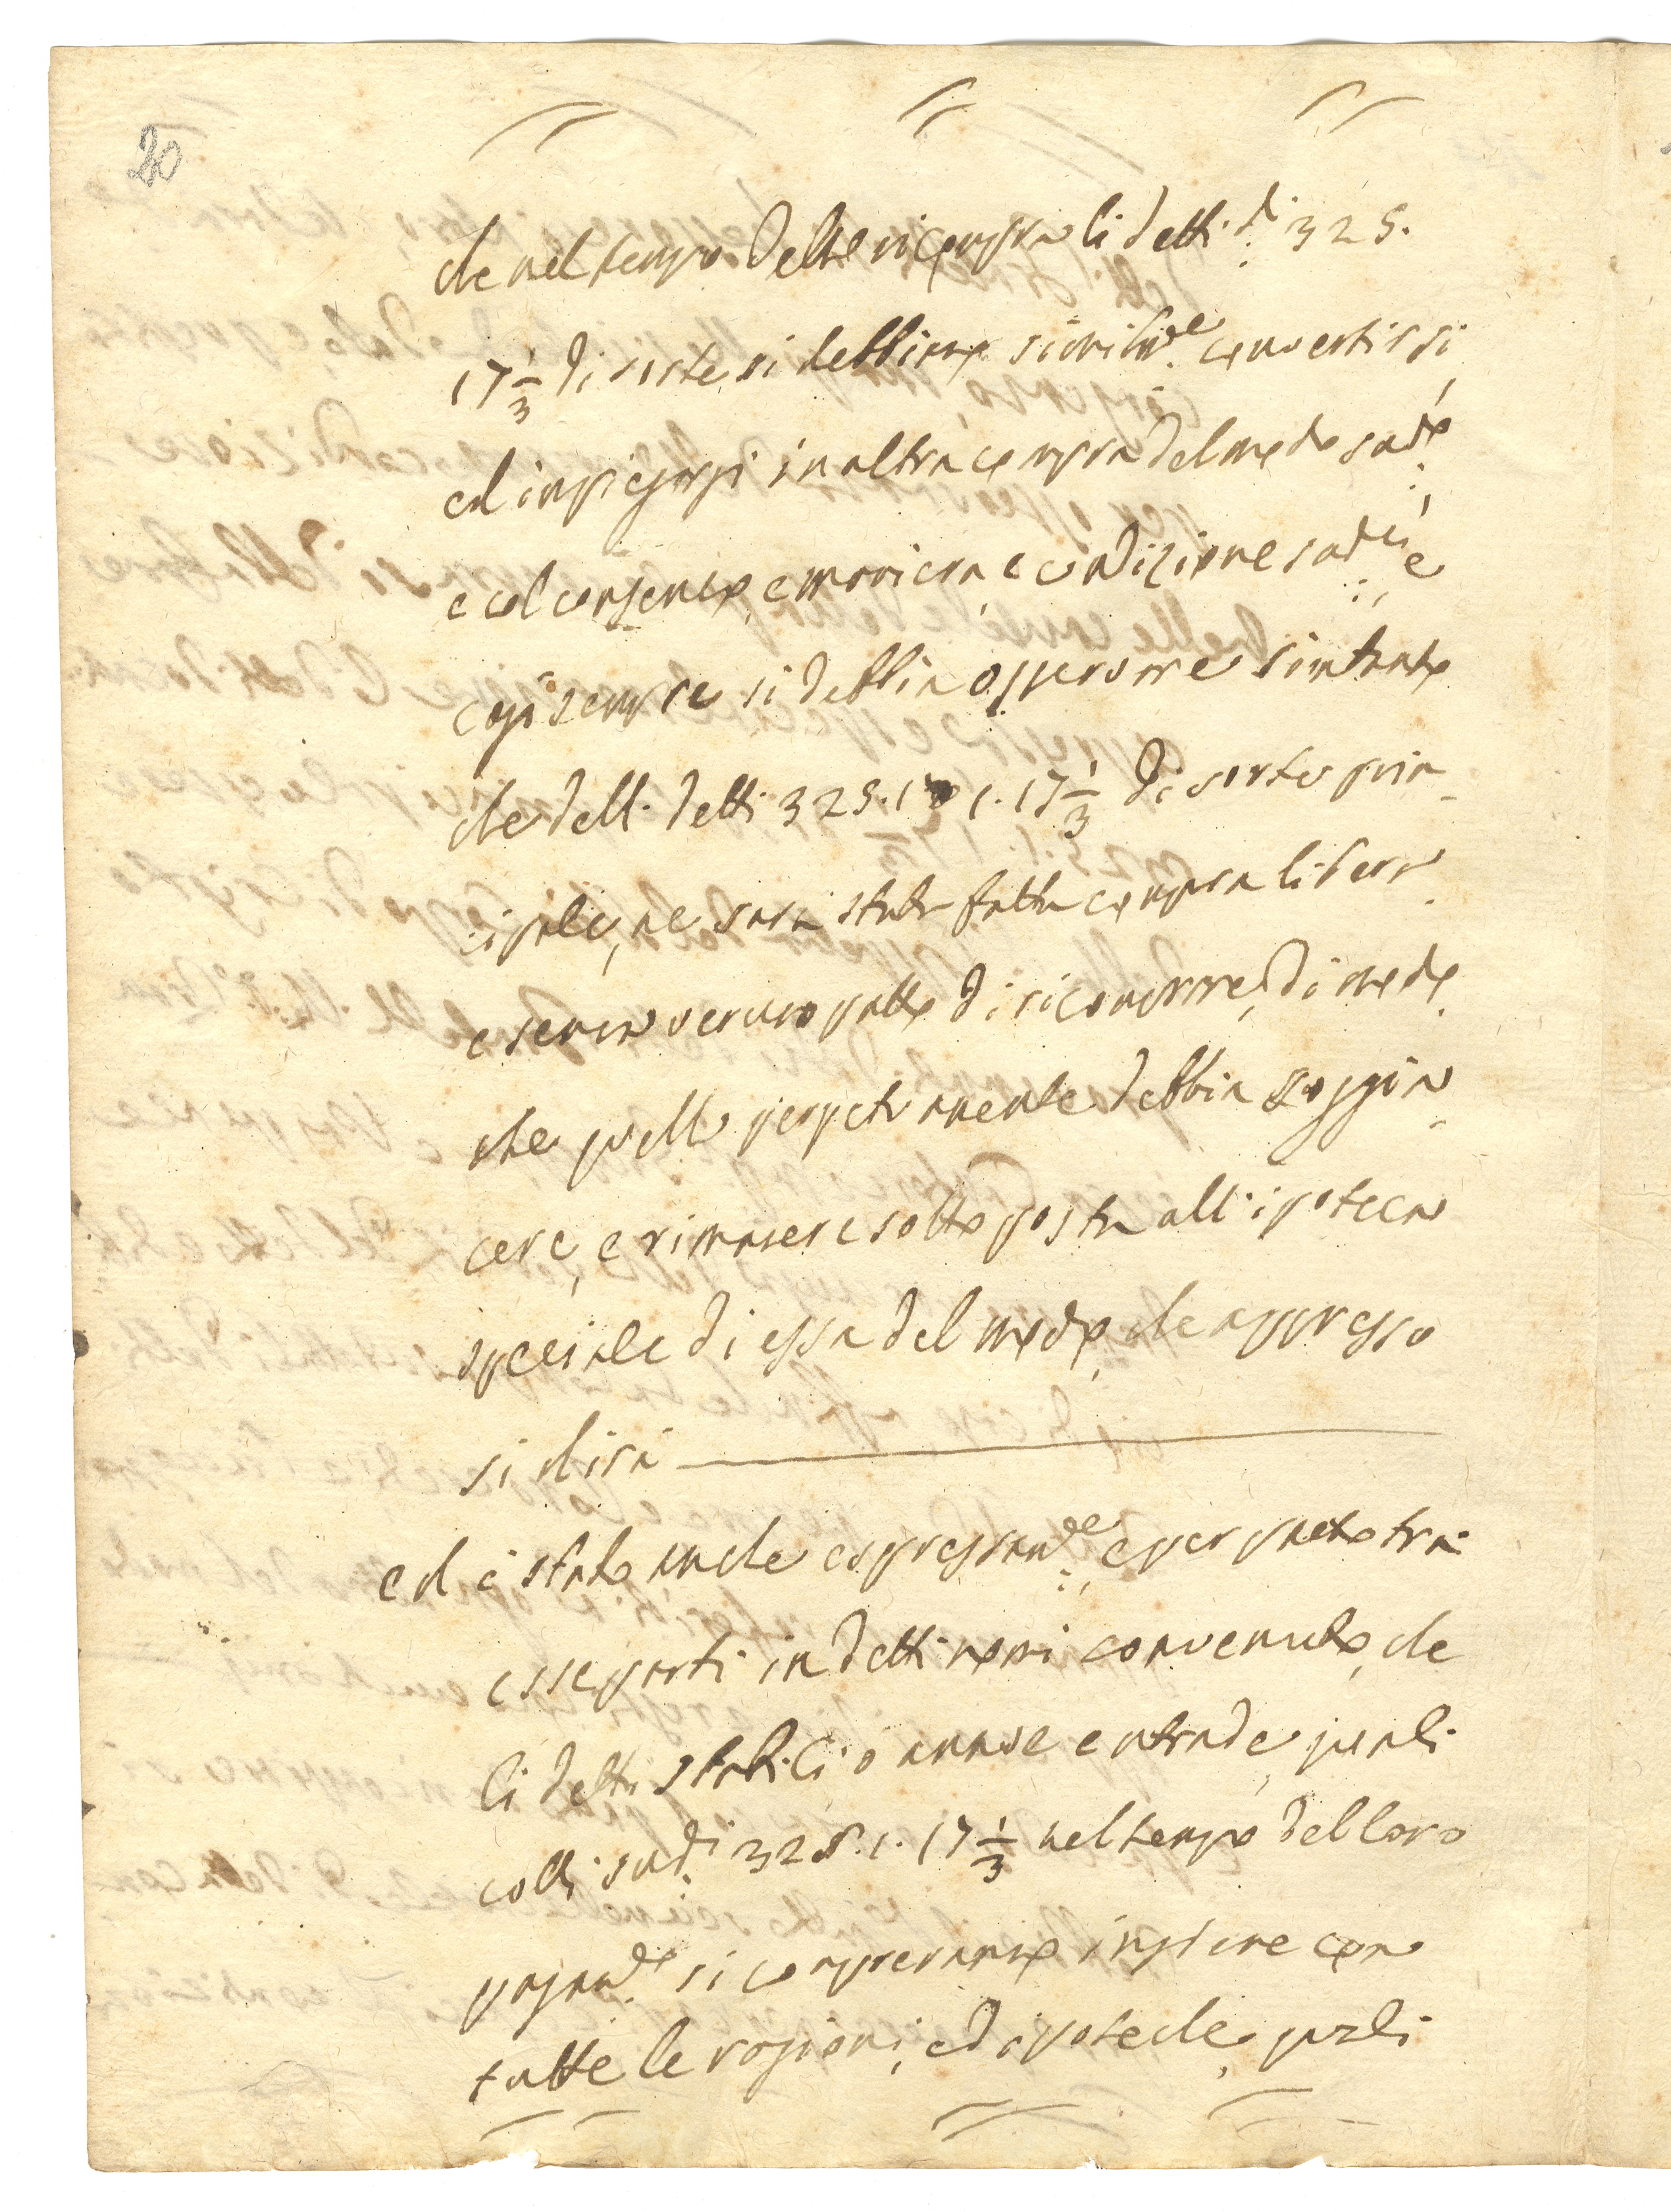 20
che nel tempo della ricompra li detti d.i 325.
17 1/3 di sorte, si debbiano similm.te convertirsi,
ed impiegarsi in altra compra del modo sud.o,
e col consenso, e maniera, e condizione sud.a, e
così sempre si debbia osservare sintanto
che delli detti 325. 1. 17 1/3 di sorte prin-
cipale, ne sarà stata fatta compra libera
e senza veruno patto di ricomprare, di modo
che quella perpetuamente debbia soggia-
cere, e rimanere sottoposta all'ipoteca
speciale di essa del modo, che appresso
si dirà
ed è stato anche espressam.te, e per patto tra
esse parti in detti nomi convenuto, che
li detti stabili o annue entrade, quali
colli sud.i 325. 1. 17 1/3 nel tempo del loro
pagam.to si compreranno insieme con
tutte le ragioni, ed ipoteche, quali